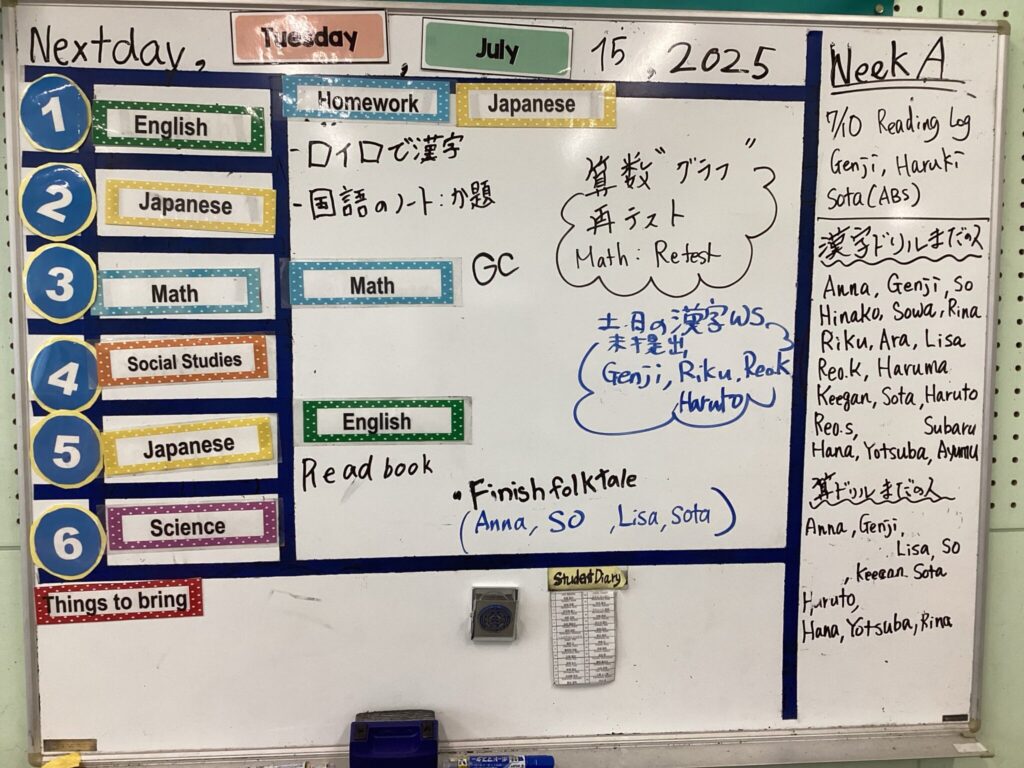 Nextday, Tuesday, July 15, 2025
1 English
2 Japanese
3 Math
4 Social Studies
5 Japanese
6 Science
Things to bring
Homework Japanese
- ロイロで漢字
- 国語のノート:か題
算数"グラフ"
再テスト
Math: Retest
Math GC
土日の漢字WS
未提出
Genji, Riku, Reo.k
Haruto
English
Read book
• Finish folktale
(Anna, SO , Lisa, Sota)
Student Diary
Week A
7/10 Reading Log
Genji, Haruki
Sota (ABS)
漢字ドリルまだの人
Anna, Genji, So
Hinako, Sowa, Rina
Riku, Ara, Lisa
Reo.k, Haruma
Keegan, Sota, Haruto
Reo.s, Subaru
Hana, Yotsuba, Ayumu
算ドリルまだの人
Anna, Genji,
Lisa, So
, Keegan Sota
Huruto,
Hana, Yotsuba, Rina